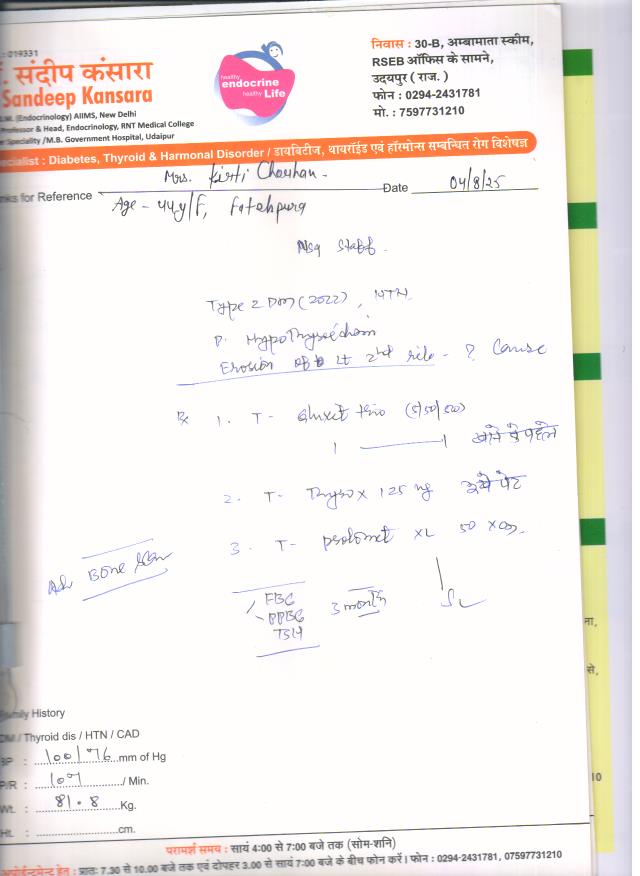 : 019331
. संदीप कंसारा
Sandeep Kansara
.M. (Endocrinology) AIIMS, New Delhi
Professor & Head, Endocrinology, RNT Medical College
r Speciality /M.B. Government Hospital, Udaipur
healthy
endocrine
healthy Life
निवास : 30-B, अम्बामाता स्कीम,
RSEB ऑफिस के सामने,
उदयपुर ( राज. )
फोन : 0294-2431781
मो. : 7597731210
ecialist : Diabetes, Thyroid & Harmonal Disorder / डायबिटीज, थायरॉईड एवं हॉरमोन्स सम्बन्धित रोग विशेषज्ञ
Mrs. Kirti Chouhan
nks for Reference
Date 04/8/25
Age - 44y/F, Fatehpura
Staff
Type 2 DM (2022), HTN
P. Hypothyroidism
Erosion of Lt 2nd rib - ? Cause
Rx 1. T- (5/50/500)
1 ——— 1 खाने से पहले
2. T- Thyrox 125 mg
3. T- XL 50
Adv Bone Scan
FBG
PPBG
TSH
3 month
Family History
DM / Thyroid dis / HTN / CAD
BP : 100/76 mm of Hg
P/R : 107 / Min.
Wt. : 81.8 Kg.
Ht. : cm.
ना,
से,
10
परामर्श समय : सायं 4:00 से 7:00 बजे तक (सोम-शनि)
अपोईन्टमेन्ट हेतु : प्रातः 7.30 से 10.00 बजे तक एवं दोपहर 3.00 से सायं 7:00 बजे के बीच फोन करें। फोन : 0294-2431781, 07597731210